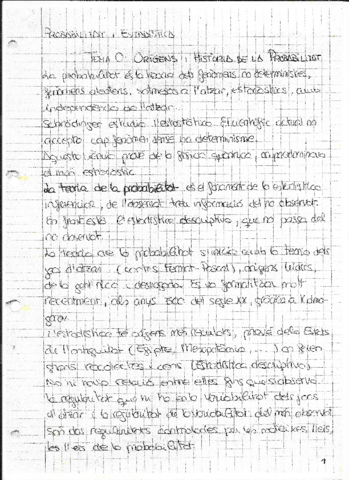 PROBABILITAT I ESTADÍSTICA
TEMA 0: ORÍGENS I HISTÒRIA DE LA PROBABILITAT.
La probabilitat és la teoria dels fenòmens no deterministes,
fenòmens aleatoris, sotmesos a l'atzar, estocàstics, amb
independència de l'atzar.
Schrödinger estudià l'estadística. El científic actual no
accepta cap fenomen sense
Aquesta prové de la física quàntica, on predomina
el món estocàstic.
La teoria de la probabilitat és el fonament de la estadística
inferencial, de l'observat treu informació del no observat.
En front està l'estadística descriptiva, que no passa del
no observat.
La teoria de la probabilitat s'inicia amb la teoria dels
jocs d'atzar (cartes Fermat-Pascal), orígens lúdics,
de la gent rica i desvagada. Es va formalitzar molt
recentment, als anys del segle XX, gràcies a Kolmo-
gorov.
L'estadística té orígens més regulars, prové dels Estats
de l'antiguitat (Egipte, Mesopotàmia, ...) on es feien
grans recol·lectes i cens (Estadística descriptiva)
No hi havia relació entre elles fins que s'observà
la regularitat que hi ha en la variabilitat dels jocs
d'atzar i la regularitat de la variabilitat del món observat
són dos regularitats controlades per les mateixes lleis,
les lleis de la probabilitat.
1